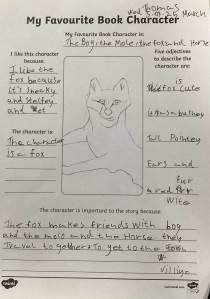 Thomas
Wed 5-03-25 March
My Favourite Book Character
My Favourite Book Character is:
The Boy the Mole the fox and Horse
I like this character because:
I like the
fox because
it's sneaky
and
and
The character is:
The character
is a fox
Five adjectives to describe the character are:
is
fox cute
Ears and
fur
are red
Wite
The character is important to the story because:
The fox makes friends with boy
and the mole and the Horse they
Travel to gether To get to the
Villiye
twinkl